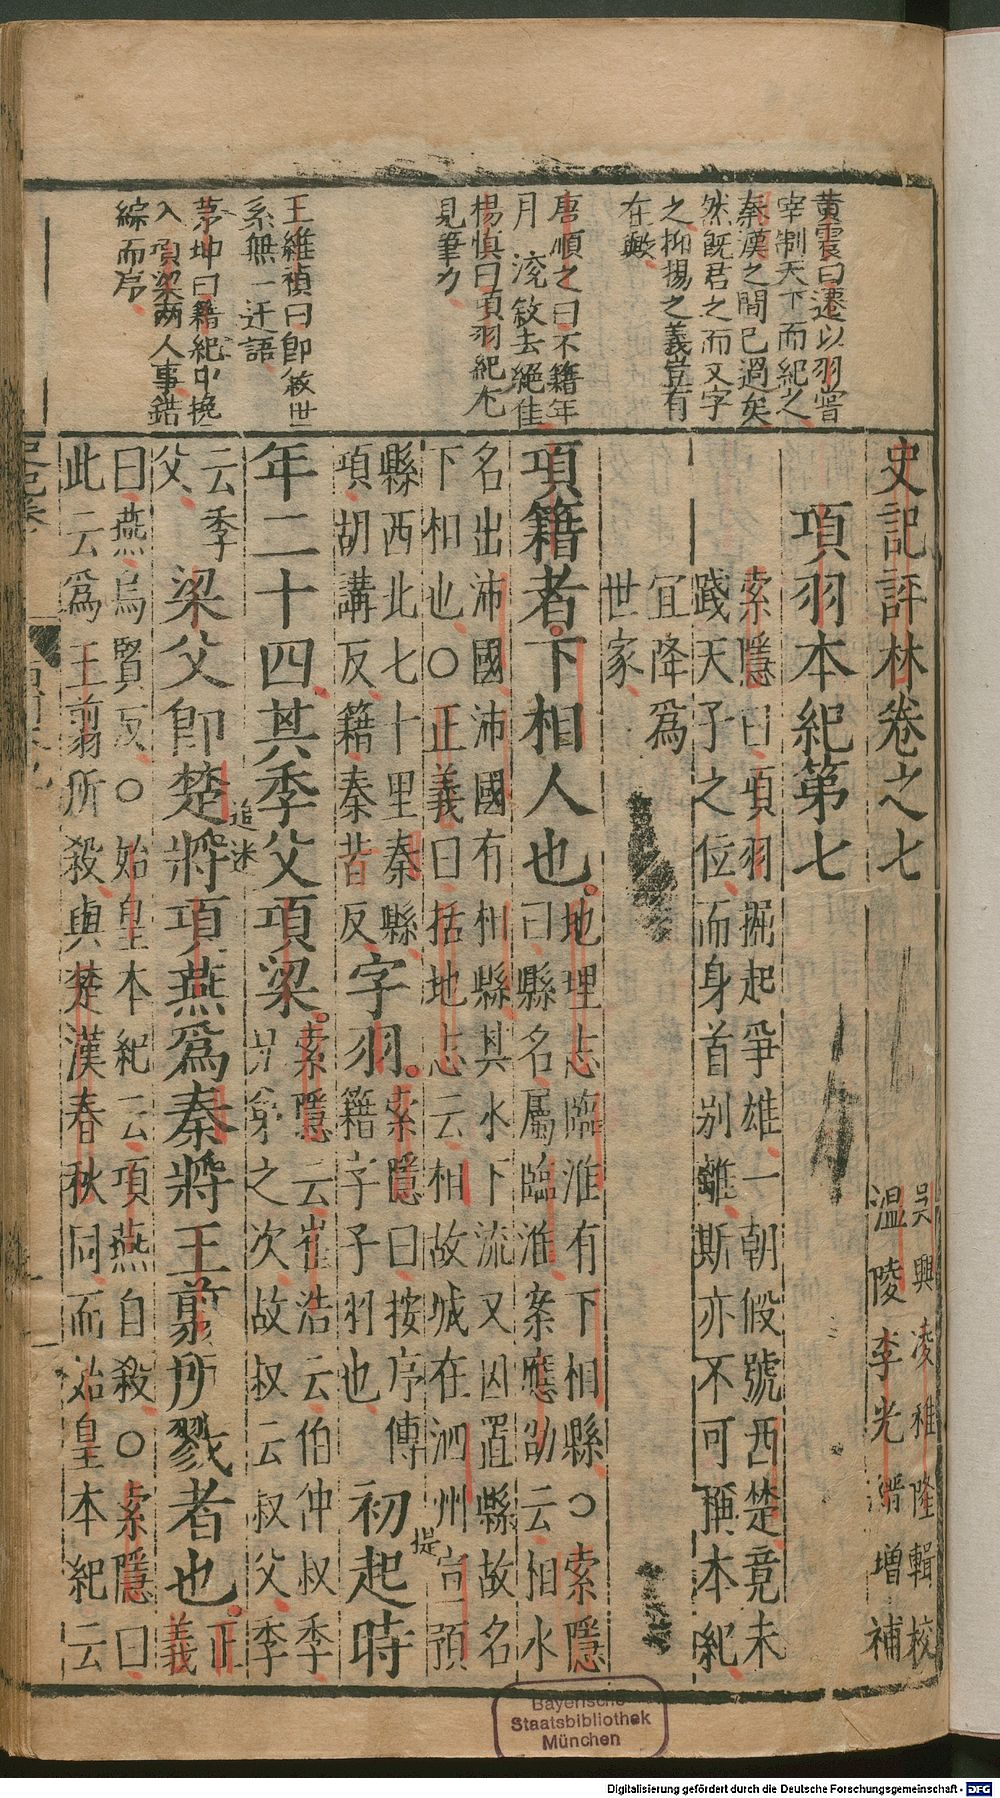 黃震曰遷以羽嘗
宰制天下而紀之
秦漢之間已過矣
然既君之而又字
之抑揚之義豈有
在歟
唐順之曰不籍年
月溇敘去絕佳
楊慎曰項羽紀尤
見筆力
王維禎曰卽敘世
系無一迂語
茅坤曰籍紀中挽
入項梁兩人事錯
綜而序
史記評林卷之七
吳興凌稚隆輯校
溫陵李光縉增補
項羽本紀第七
索隱曰項羽掘起爭雄一朝假號西楚竟未
踐天子之位而身首別離斯亦不可稱本紀
宜降爲
世家
項籍者下相人也
地理志臨淮有下相縣○索隱
曰縣名屬臨淮案應劭云相水
名出沛國沛國有相縣其水下流又因置縣故名
下相也○正義曰括地志云相故城在泗州宿預
縣西北七十里秦縣
項胡講反籍秦昔反
字羽
索隱曰按序傳
籍字子羽也
初起時
提
年二十四其季父項梁
索隱云崔浩云伯仲叔季
兄弟之次故叔云叔父季
云季
父
追述
梁父卽楚將項燕爲秦將王翦所戮者也
正
義
曰燕烏賢反○始皇本紀云項燕自殺○索隱曰
此云爲王翦所殺與楚漢春秋同而始皇本紀云
Bayerische
Staatsbibliothek
München
Digitalisierung gefördert durch die Deutsche Forschungsgemeinschaft - DFG